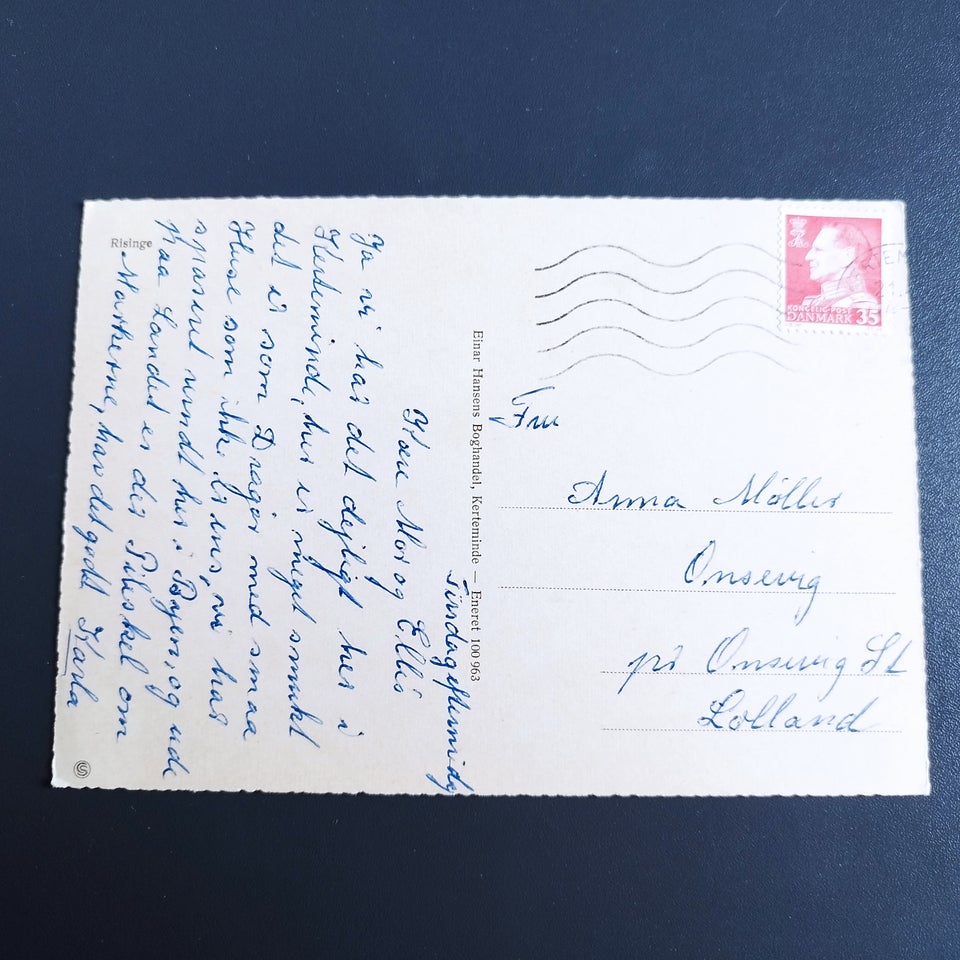 Risinge
Søndageftermidg
Kære Mor og Ellis
Ja vi har det dejligt her i
Kerteminde, her er meget smukt
det er som Dragør med smaa
Huse som ikke er ens, vi har
spaseret rundt her i Byen, og ude
paa Landet er der Pilehel om
Markerne, hav det godt Karla
Einar Hansens Boghandel, Kerteminde — Eneret 100 963
KONGELIG POST
DANMARK 35
Fru
Anna Möller
Onsevig
pr Onsevig St
Lolland